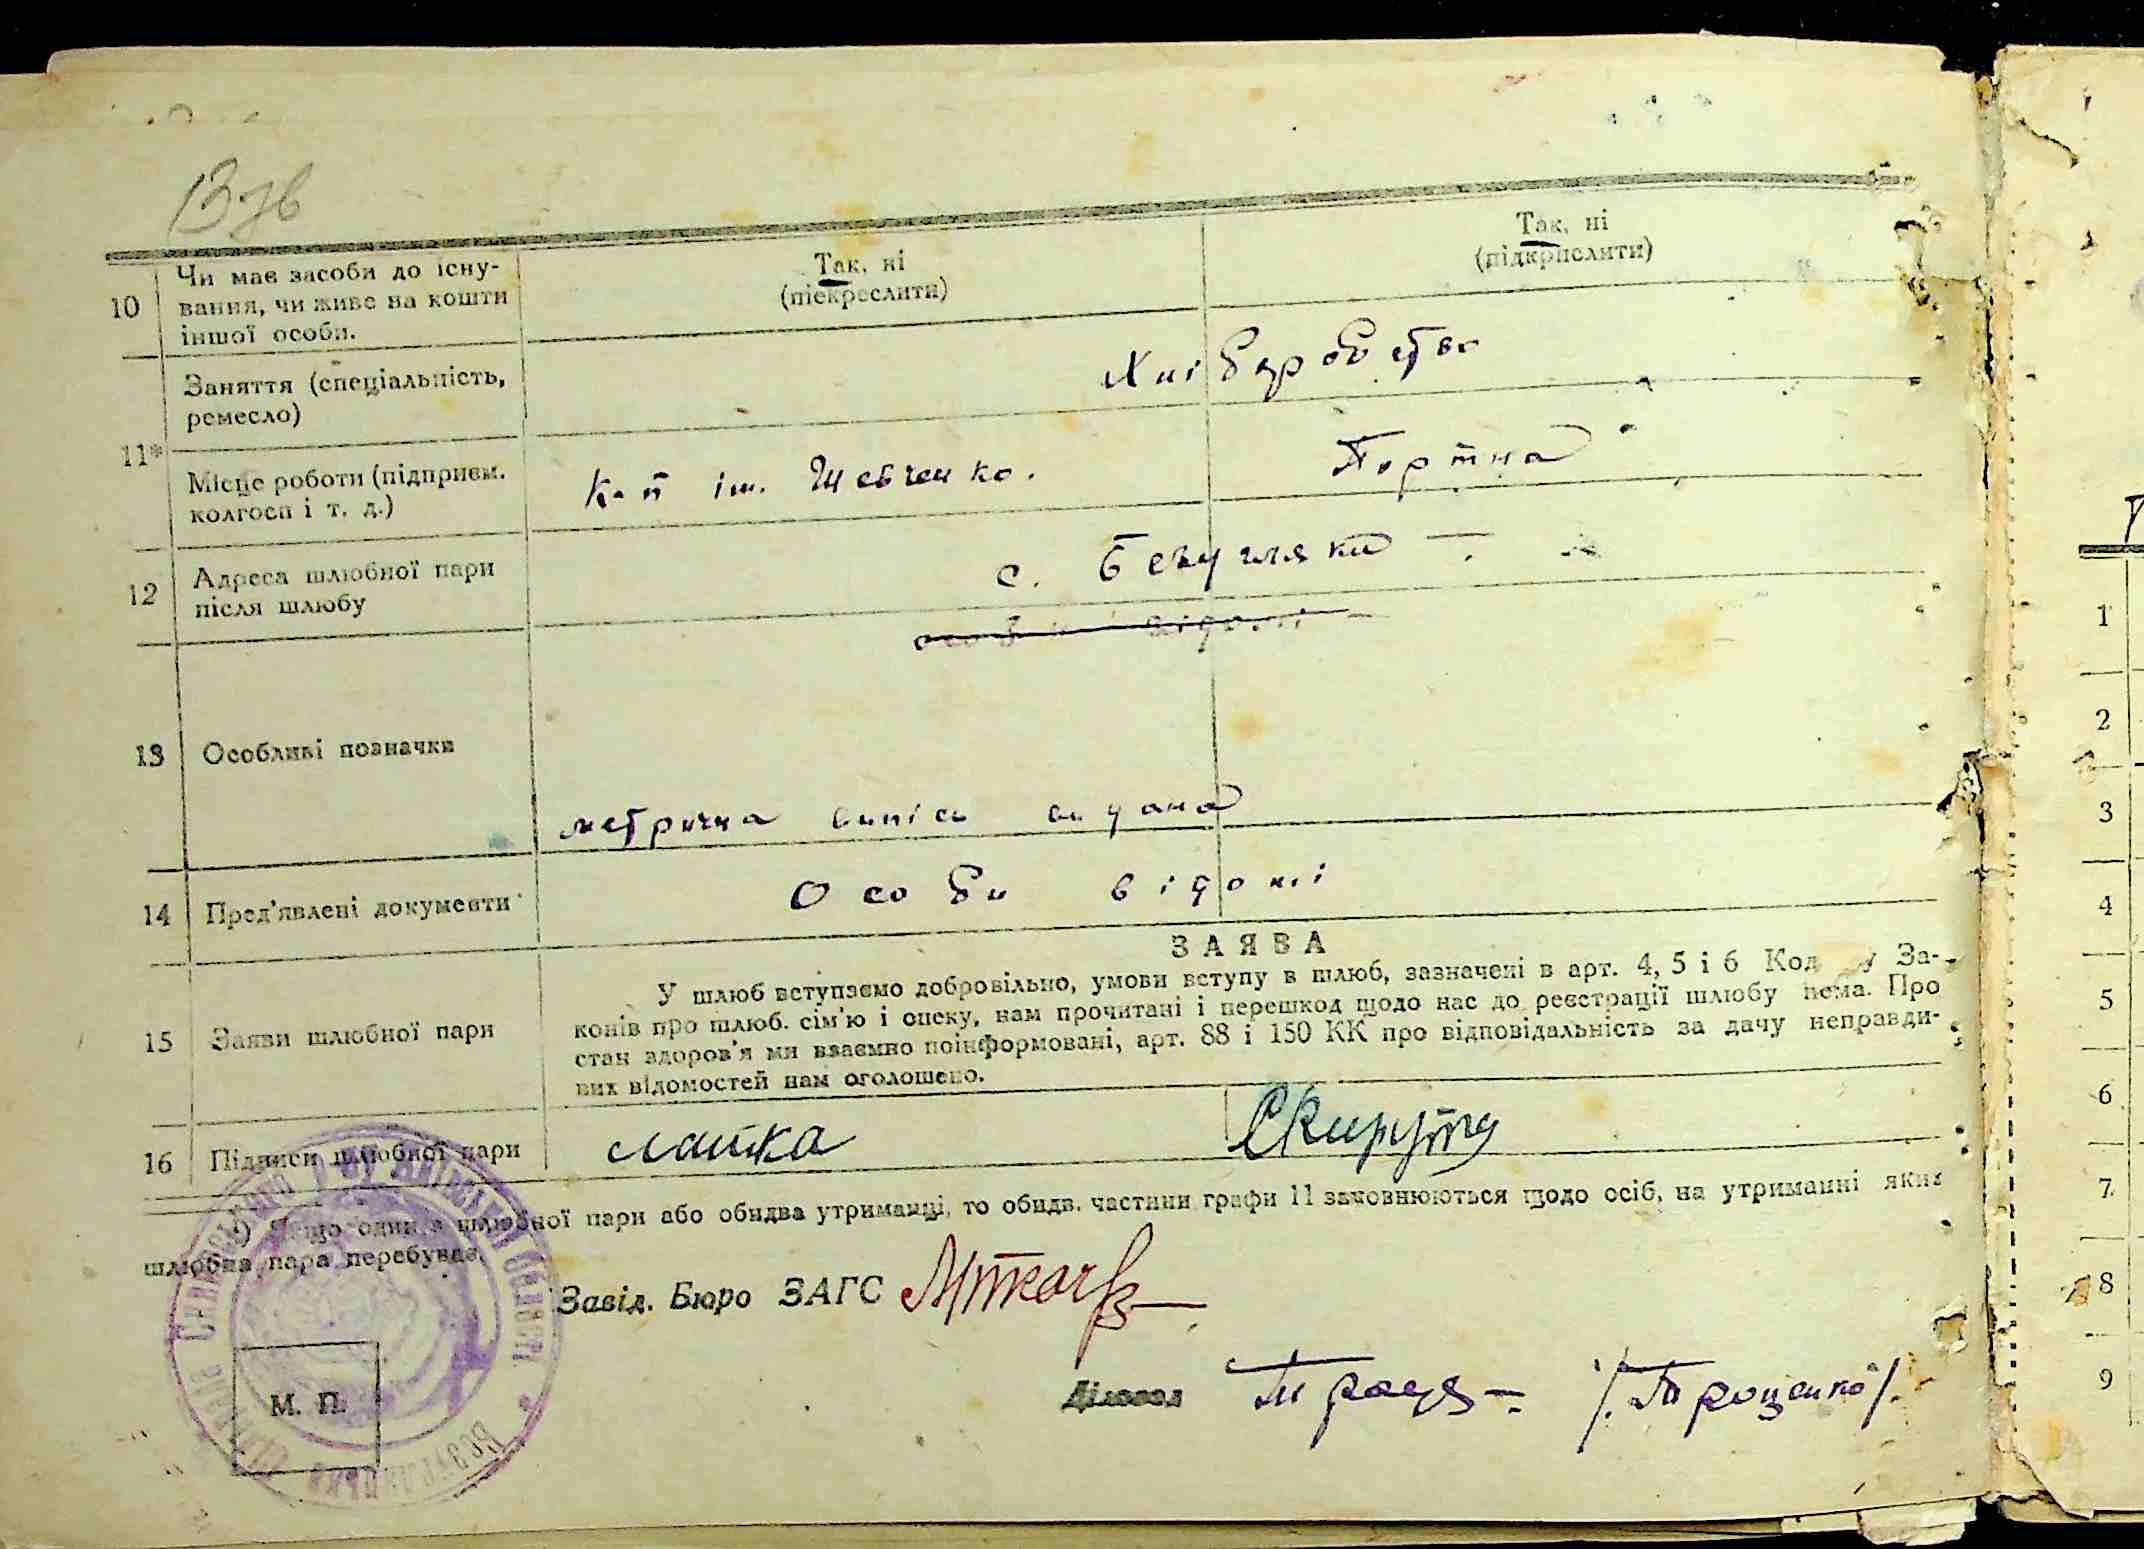 Так, ні
(підкрислити)
Так, ні
(піекреслити)
10
Чи має засоби до існу-
вання, чи живе на кошти
іншої особи.
11*
Заняття (спеціальність,
ремесло)
Хлібаробство
Місце роботи (підприєм.
колгосп і т. д.)
К-п ім. Шевченко.
Портна
12
Адреса шлюбної пари
після шлюбу
с. Безугляки
13
Особливі позначки
особи відомі
метрична випісь видана
14
Пред'явлені документи
Особи відомі
ЗАЯВА
15
Заяви шлюбної пари
У шлюб вступаємо добровільно, умови вступу в шлюб, зазначені в арт. 4, 5 і 6 За-
конів про шлюб. сім'ю і опеку, нам прочитані і перешкод щодо нас до реєстрації шлюбу нема. Про
стан здоров'я ми взаємно поінформовані, арт. 88 і 150 КК про відповідальність за дачу неправди-
вих відомостей нам оголошено.
16
Підписи шлюбної пари
*) Якщо один з шлюбної пари або обидва утриманці, то обидв. частини графи 11 заповнюються щодо осіб, на утриманні яких
шлюбна пара перебуває.
Завід. Бюро ЗАГС
М. П.
Діловод
/Троценко/.
1
2
3
4
5
6
7
8
9